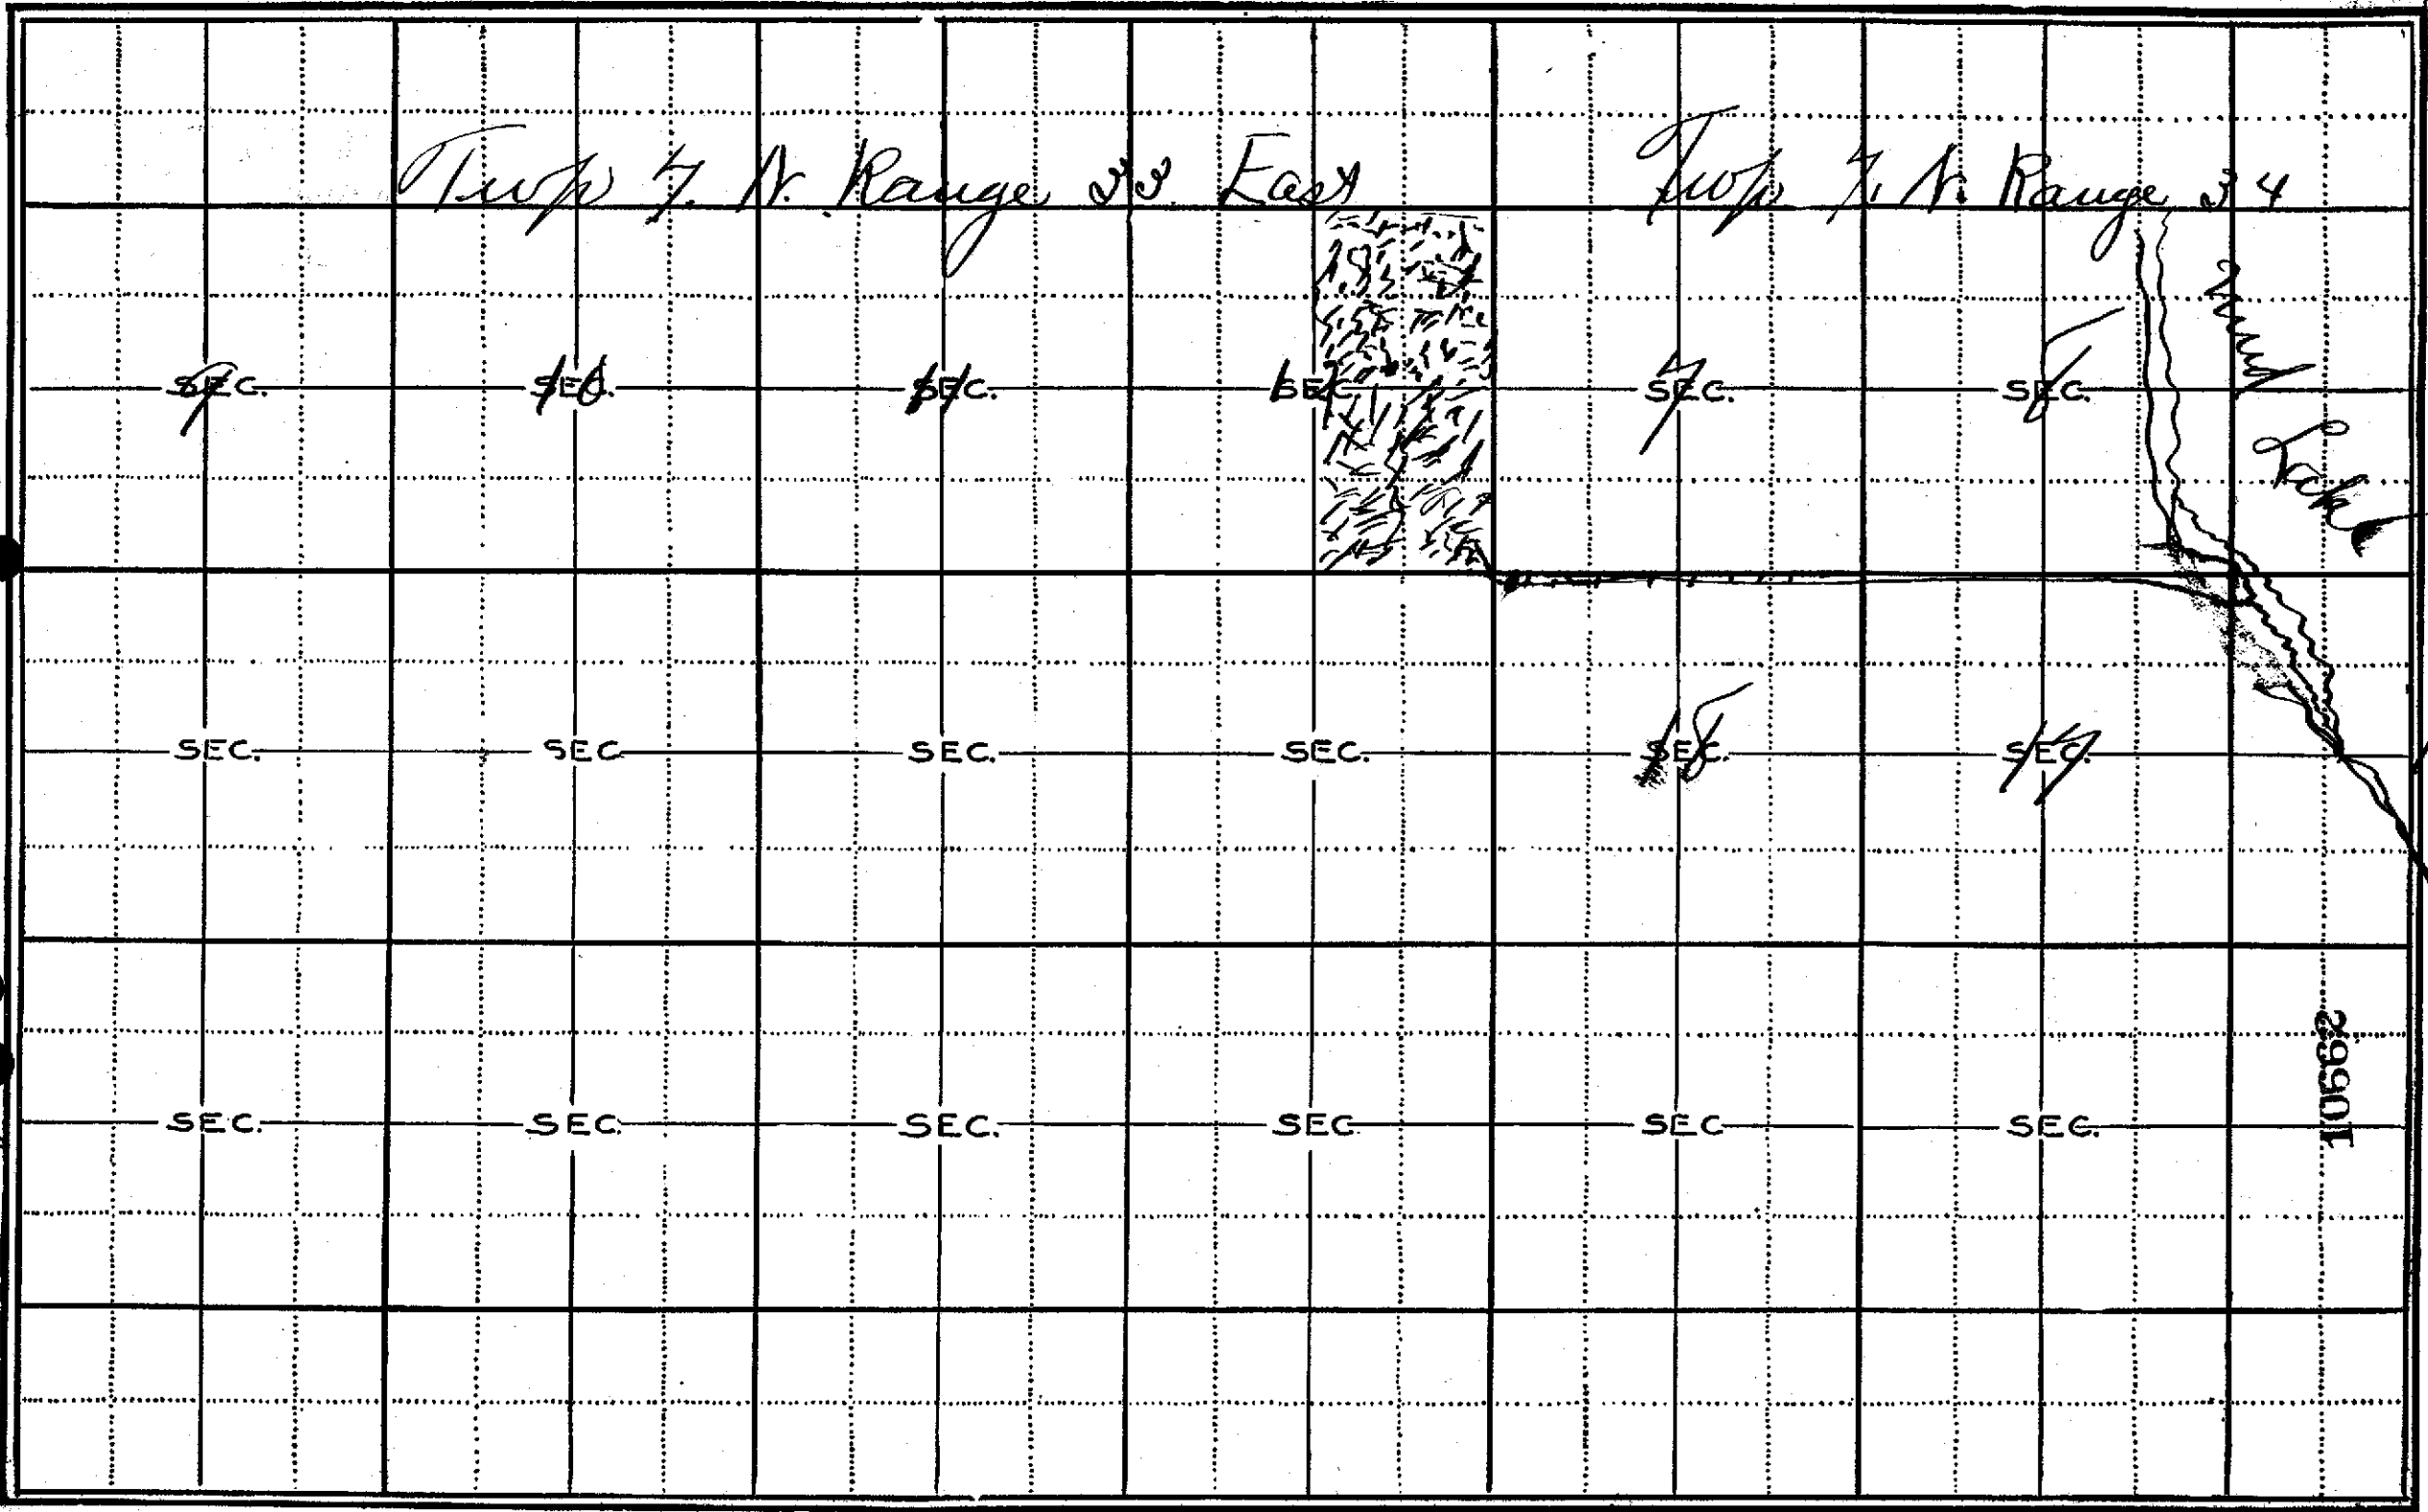 Twp 7. N. Range 33 East
Twp 7. N. Range 34
Mud Lake
SEC. 9
SEC. 10
SEC. 11
SEC. 12
SEC. 7
SEC. 8
SEC.
SEC
SEC.
SEC.
SEC. 18
SEC. 17
SEC.
SEC.
SEC.
SEC
SEC
SEC.
10662